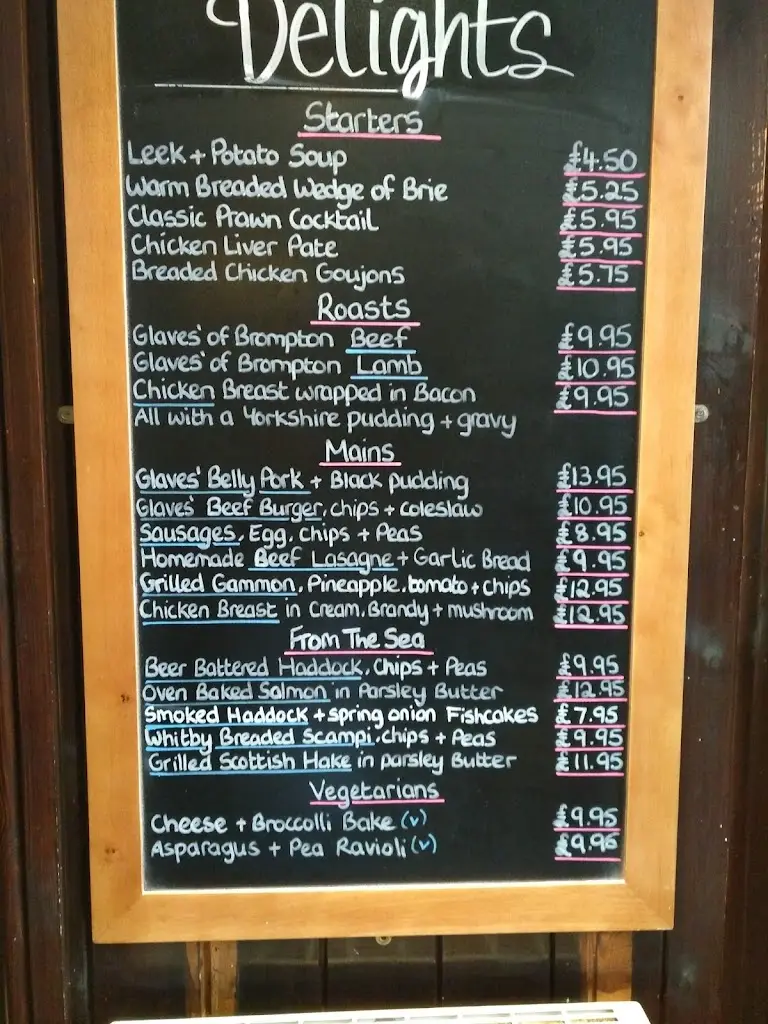 Delights
Starters
Leek + Potato Soup £4.50
Warm Breaded Wedge of Brie £5.25
Classic Prawn Cocktail £5.95
Chicken Liver Pate £5.95
Breaded Chicken Goujons £5.75
Roasts
Glaves' of Brompton Beef £9.95
Glaves' of Brompton Lamb £10.95
Chicken Breast wrapped in Bacon £9.95
All with a Yorkshire pudding + gravy
Mains
Glaves' Belly Pork + Black pudding £13.95
Glaves' Beef Burger, chips + coleslaw £10.95
Sausages, Egg, chips + Peas £8.95
Homemade Beef Lasagne + Garlic Bread £9.95
Grilled Gammon, Pineapple, tomato + chips £12.95
Chicken Breast in Cream, Brandy + mushroom £12.95
From The Sea
Beer Battered Haddock, chips + Peas £9.95
Oven Baked Salmon in Parsley Butter £12.95
Smoked Haddock + spring onion Fishcakes £7.95
Whitby Breaded Scampi, chips + Peas £9.95
Grilled Scottish Hake in parsley Butter £11.95
Vegetarians
Cheese + Broccolli Bake (v) £9.95
Asparagus + Pea Ravioli (v) £9.96